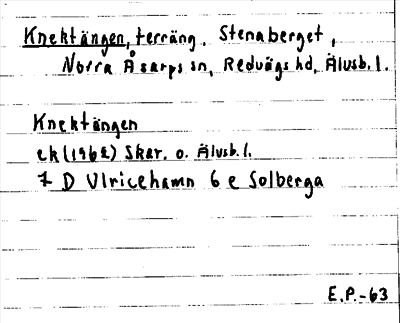 Knektängen, terräng. Stenaberget,
Norra Åsarps sn, Redvägs hd, Älvsb. l.
Knektängen
ek (1962) Skar. o. Älvsb. l.
7 D Ulricehamn 6 e Solberga
E.P.-63